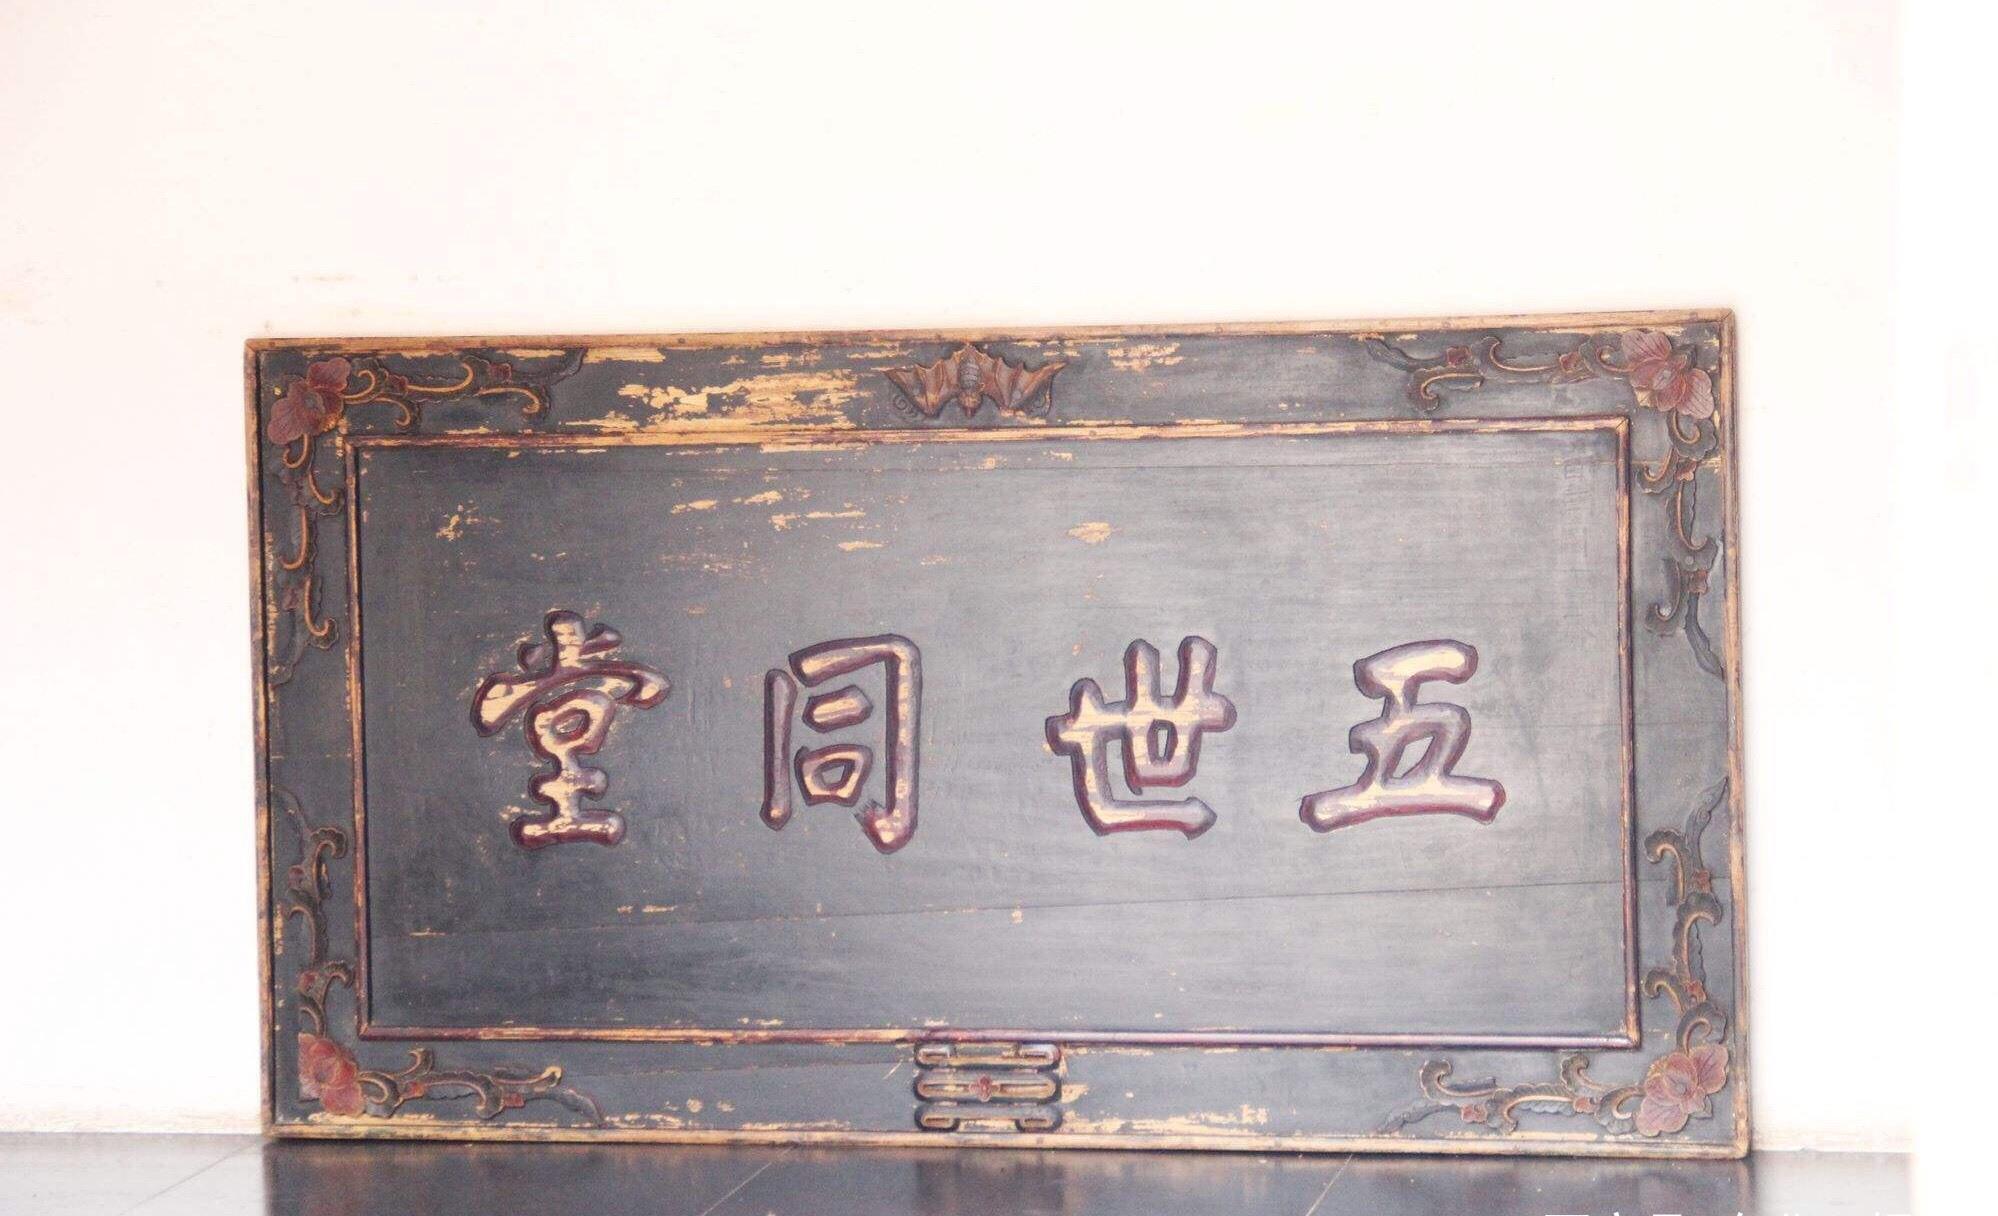 五世同堂